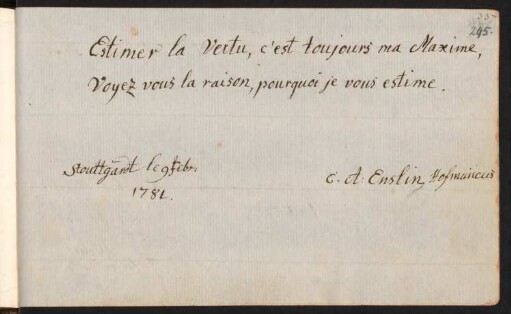 295.
Estimer la Vertu, c'est toujours ma Maxime,
Voyez vous la raison, pourquoi je vous estime.
Stouttgard le 9 febr.
1781.
C. A. Enslin